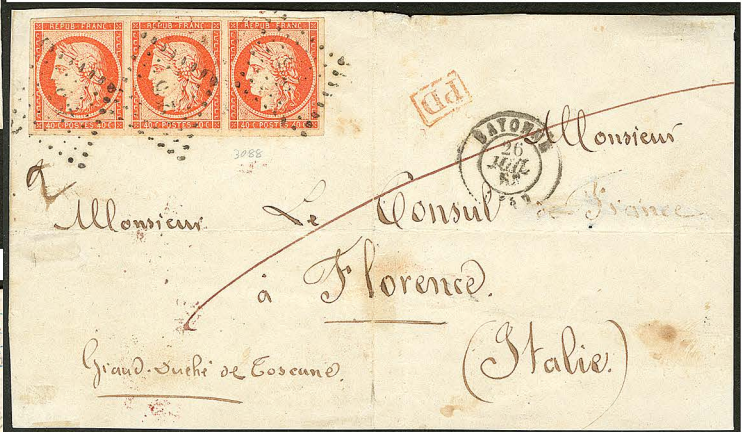 REPUB. FRANC. REPUB. FRANC. REPUB. FRANC.
40.C. POSTES 40.C. 40.C. POSTES 40.C. 40.C. POSTES 40.C.
PD
3088
BAYONNE
26
JUIL.
52
2
Monsieur
Monsieur Le Consul de France
à Florence.
(Italie.)
Grand-Duché de Toscane.